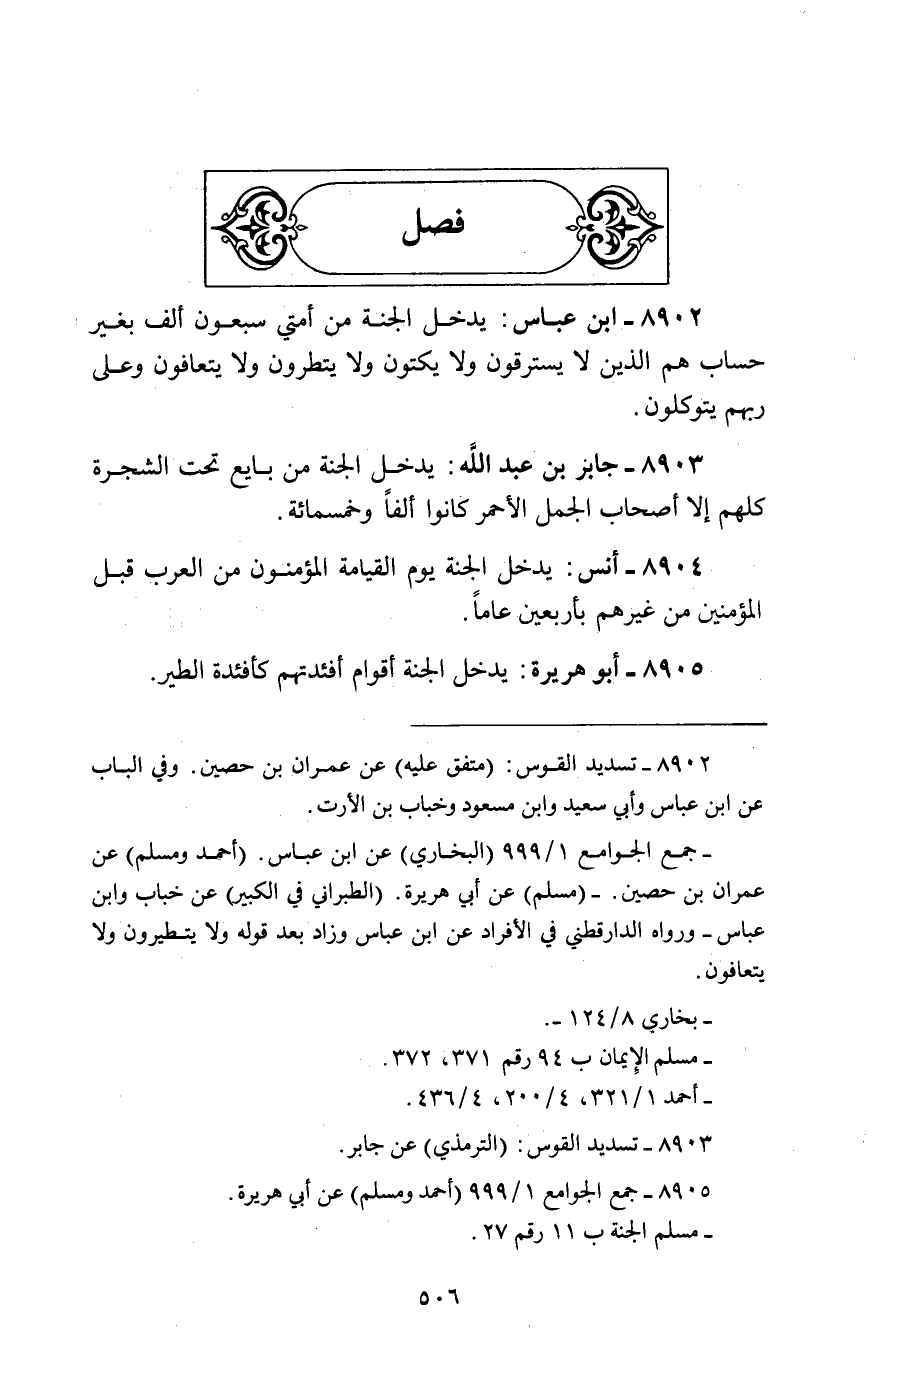 فصل
٨٩٠٢ ـ ابن عباس: يدخل الجنة من أمتي سبعون ألف بغير
حساب هم الذين لا يسترقون ولا يكتون ولا يتطرون ولا يتعافون وعلى
ربهم يتوكلون.
٨٩٠٣ ـ جابز بن عبد اللَّه: يدخل الجنة من بايع تحت الشجرة
كلهم إلا أصحاب الجمل الأحمر كانوا ألفاً وخمسمائة.
٨٩٠٤ ـ أنس: يدخل الجنة يوم القيامة المؤمنون من العرب قبل
المؤمنين من غيرهم بأربعين عاماً.
٨٩٠٥ ـ أبو هريرة: يدخل الجنة أقوام أفئدتهم كأفئدة الطير.
٨٩٠٢ ـ تسديد القوس: (متفق عليه) عن عمران بن حصين. وفي الباب
عن ابن عباس وأبي سعيد وابن مسعود وخباب بن الأرت.
ـ جمع الجوامع ٩٩٩/١ (البخاري) عن ابن عباس. (أحمد ومسلم) عن
عمران بن حصين. ـ (مسلم) عن أبي هريرة. (الطبراني في الكبير) عن خباب وابن
عباس ـ ورواه الدارقطني في الأفراد عن ابن عباس وزاد بعد قوله ولا يتطيرون ولا
يتعافون.
ـ بخاري ١٢٤/٨ ـ.
ـ مسلم الإيمان ب ٩٤ رقم ٣٧١، ٣٧٢.
ـ أحمد ٣٢١/١، ٢٠٠/٤، ٤٣٦/٤.
٨٩٠٣ ـ تسديد القوس: (الترمذي) عن جابر.
٨٩٠٥ ـ جمع الجوامع ٩٩٩/١ (أحمد ومسلم) عن أبي هريرة.
ـ مسلم الجنة ب ١١ رقم ٢٧.
٥٠٦